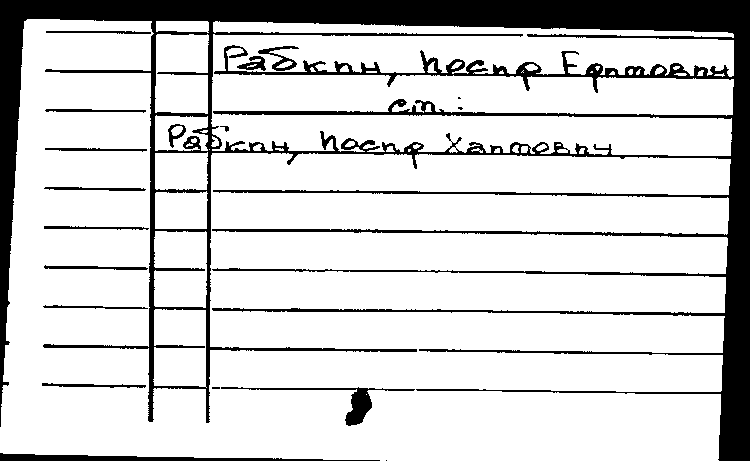 Рабкин, Иосиф Ефимович
см.:
Рабкин, Иосиф Хаимович.